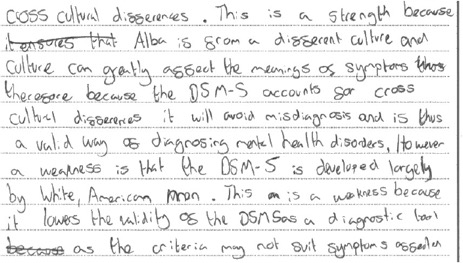 cross cultural differences. This is a strength because
it ensures that Alba is from a different culture and
culture can greatly affect the meanings of symptoms thus
therefore because the DSM-5 accounts for cross
cultural differences it will avoid misdiagnosis and is thus
a valid way of diagnosing mental health disorders, However
a weakness is that the DSM-5 is developed largely
by white, American men. This is a weakness because
it lowers the validity of the DSM5 as a diagnostic tool
because as the criteria may not suit symptoms